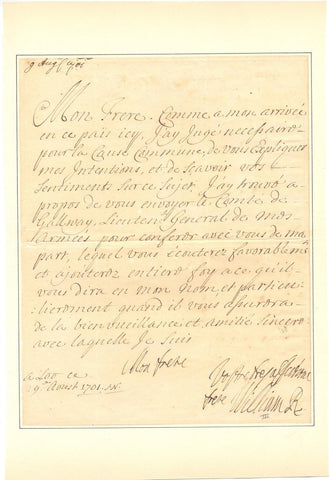 9 Augst 1701
Mon Frere. Comme a mon arrivée
en ce pais icy, J'ay Jugé necessaire
pour la Cause Commune, de vous expliquer
mes Intentions, et de scavoir vos
sentiments sur ce sujet, J'ay trouvé a
propos de vous envoyer le Comte de
Gallway, Lieutent General de mes
Armées pour conferer avec vous de ma
part, lequel vous écouterez favorablemt
et ajouterez entiere foy a ce qu'il
vous dira en mon nom et particu-
lierement quand il vous assurera
de la bienveuillance et amitie sincere
avec laquelle Je suis
Mon frere
a Loo ce
9e Aoust 1701. SN.
Vostre tres affectionné
frere William R
III